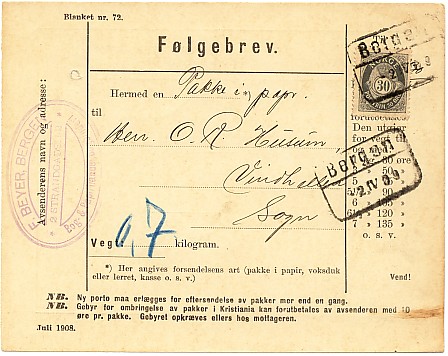 Blanket nr. 72.
Følgebrev.
Avsenderens navn og adresse:
F. BEYER, BERGEN
2 STRANDGADEN 2
Hermed en Pakke i *) papr.
til
Herr O. R Husum,
Vindhella
Sogn
Vegt: 0,7 kilogram.
30
forutbetales.
Den utgjør
for vegt til
og med
Bergen
Bergen
2 IV 09
*) Her angives forsendelsens art (pakke i papir, voksduk
eller lerret, kasse o. s. v.)
5 „
6 „
7 „ 135 „
o. s. v.
Vend!
NB. Ny porto maa erlægges for eftersendelse av pakker mer end en gang.
NB. Gebyr for ombringelse av pakker i Kristiania kan forutbetales av avsenderen med 10
øre pr. pakke. Gebyret opkræves ellers hos mottageren.
Juli 1908.